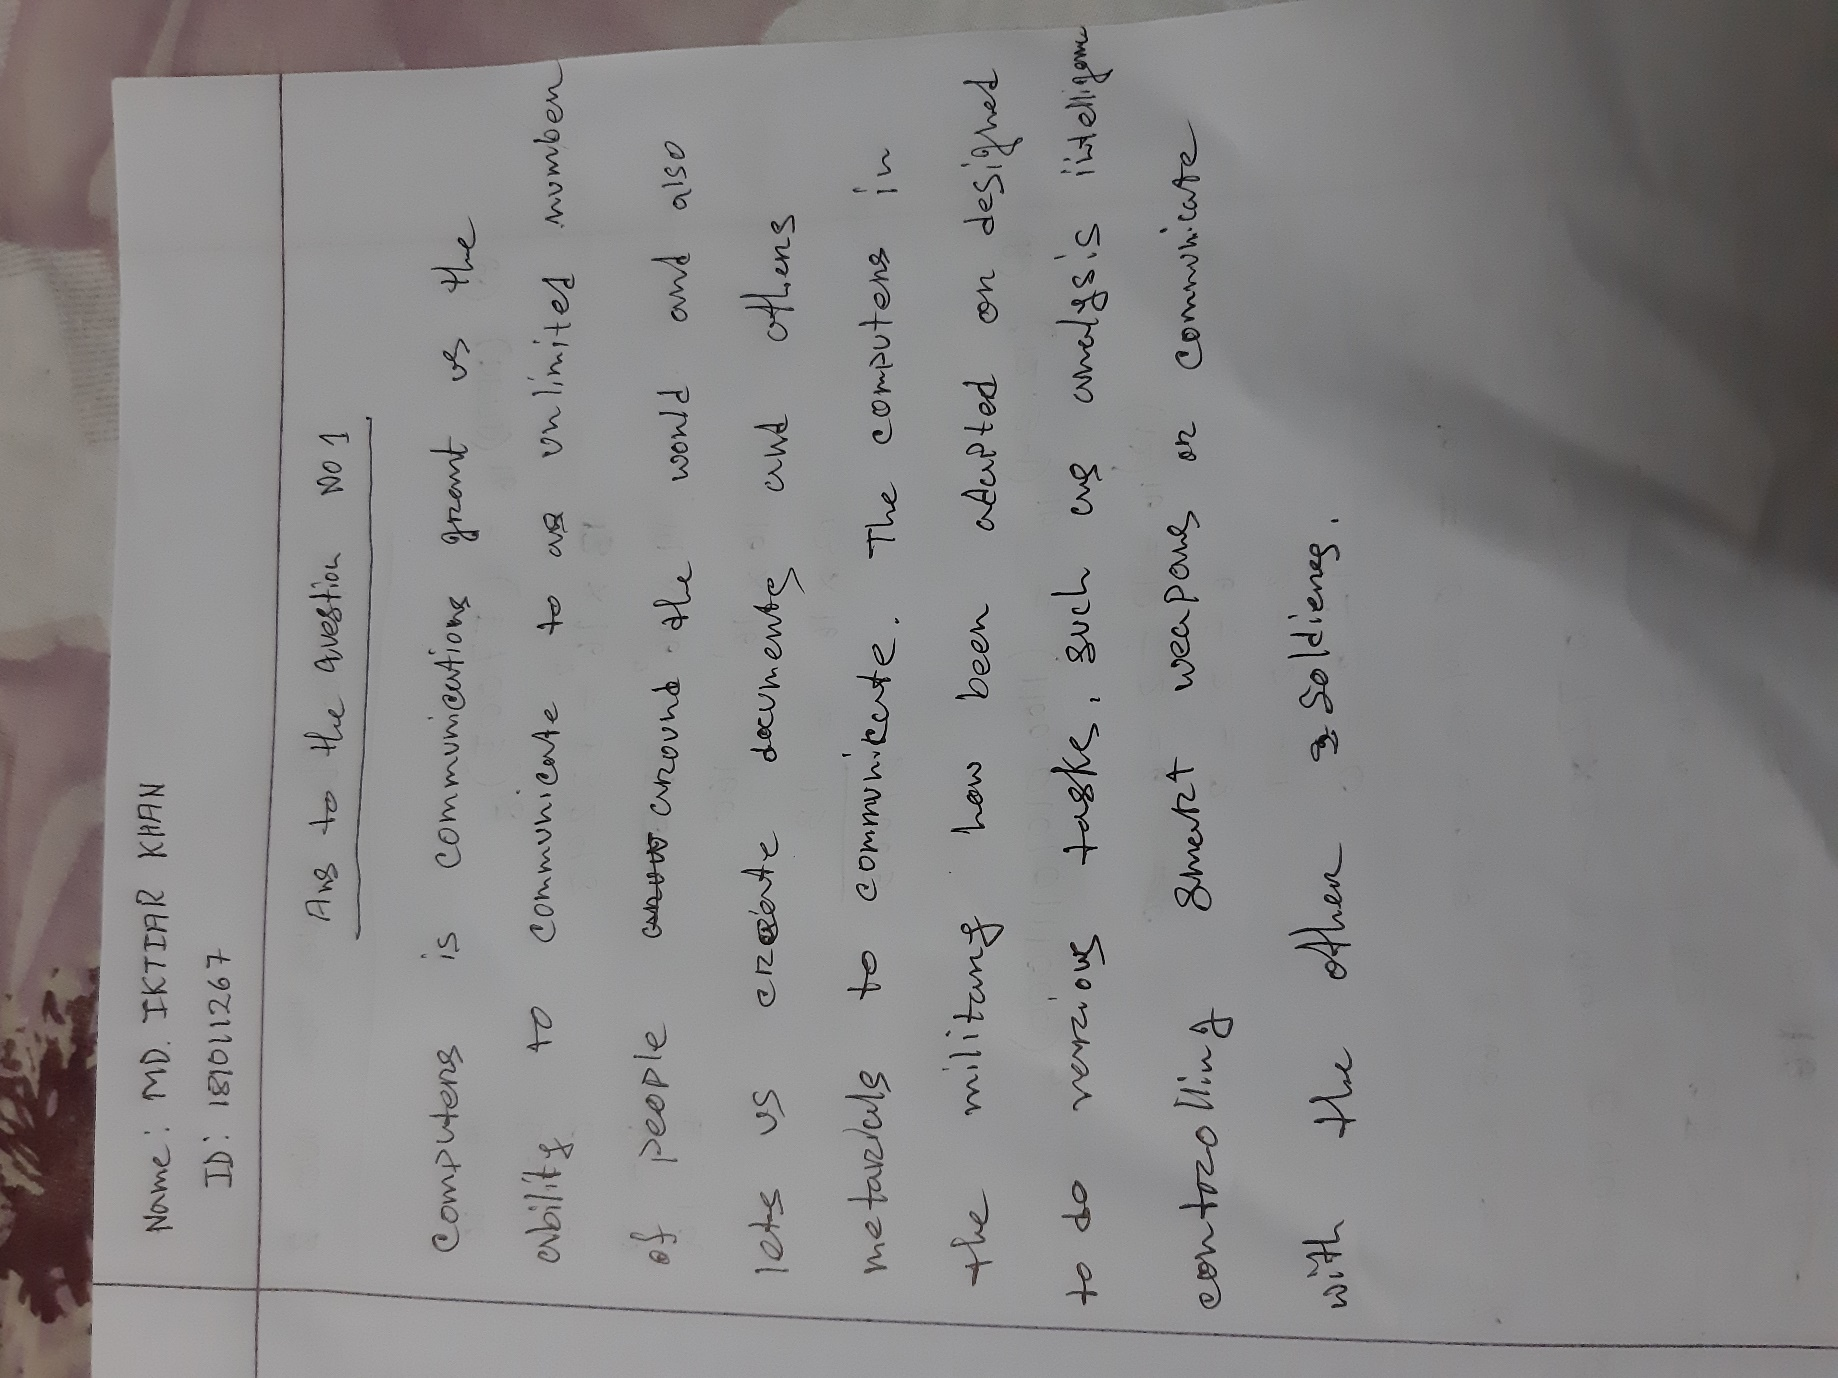 Name: MD. IKTIAR KHAN
ID: 181011267
Ans to the question No 1
Computers is communications grant us the
ability to communicate to as unlimited number
of people around the would and also
lets us create documents and others
metarials to communicate. The computers in
the military how been adapted or designed
to do various tasks, such as analysis intelligence
controlling smart weapons or communicate
with the other soldiers.